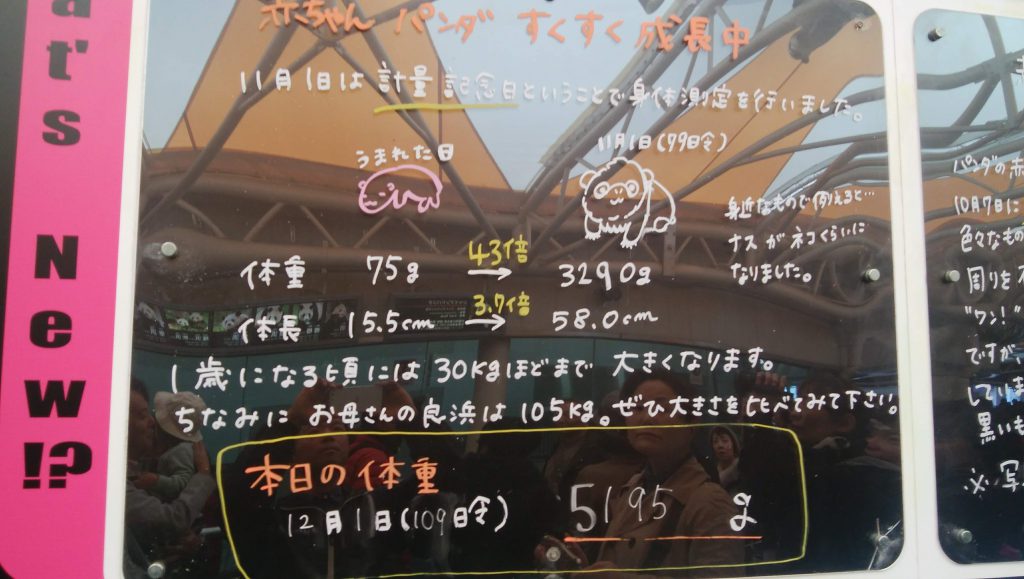 at's New!?
赤ちゃん パンダ すくすく 成長中
11月1日は 計量 記念日ということで身体測定を行いました。
うまれた日
11月1日(79日令)
身近なもので例えると…
ナスがネコくらいに
なりました。
43倍
体重 75g → 3290g
3.7倍
体長 15.5cm → 58.0cm
1歳になる頃には 30kgほどまで 大きくなります。
ちなみに お母さんの良浜は 105kg。ぜひ大きさを比べてみて下さい。
本日の体重
12月1日(109日令) 5195 g
パンダの赤
10月7日に
色々なもの
周りを
"ワン!"
ですが、
していま
黒いも
※写